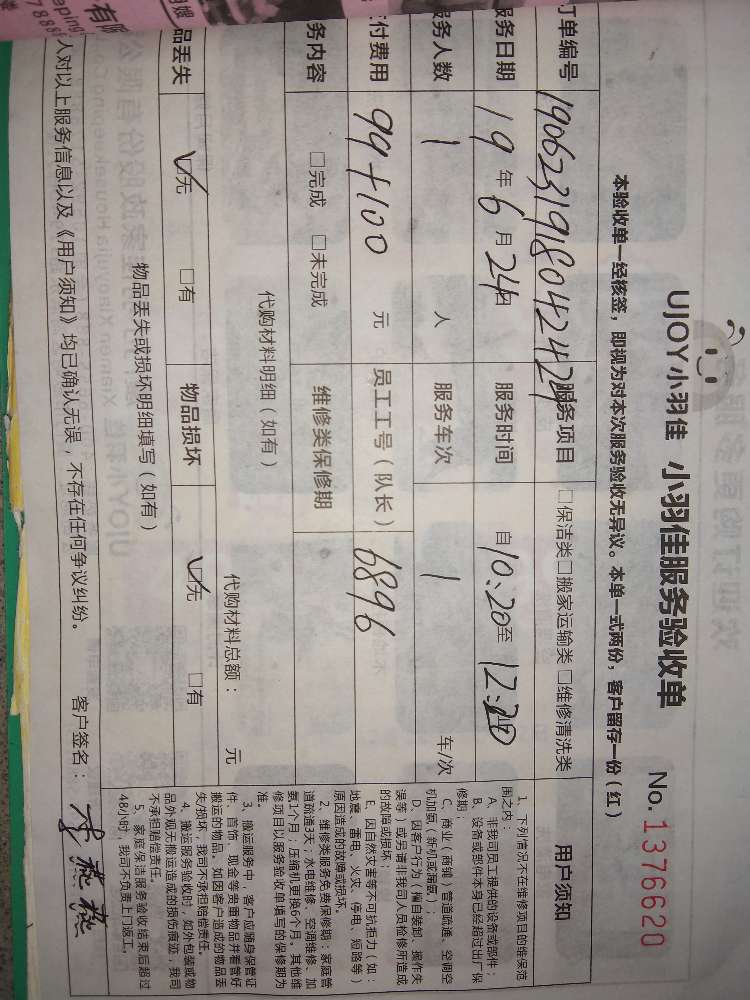 UJOY小羽佳 小羽佳服务验收单 No. 1376620
本验收单一经核签，即视为对本次服务验收无异议。本单一式两份，客户留存一份（红）
订单编号 服务项目 □保洁类□搬家运输类□维修清洗类
服务日期 19年6月24日 服务时间 自10:20至
服务人数 1 人 服务车次 1 车/次
支付费用 99+100 元 员工工号（队长） 6896
服务内容 □完成 □未完成 维修类保修期
代购材料明细（如有）
代购材料总额： 元
物品丢失 ☑无 □有 物品损坏 ☑无 □有
物品丢失或损坏明细填写（如有）
人对以上服务信息以及《用户须知》均已确认无误，不存在任何争议纠纷。 客户签名：
用户须知
1、下列情况不在维修项目的维保范
围之内：
A、非我司员工提供的设备或部件；
B、设备或部件本身已经超过出厂保
修期；
C、商业（商铺）管道疏通、空调空
机加氨（新机或漏氨）；
D、因客户行为（擅自装卸、操作失
误等）或另请非我司人员检修所造成
的故障或损坏；
E、因自然灾害等不可抗拒力（如：
地震、雷电、火灾、停电、短路等）
原因造成的故障或损坏。
2、维修类服务免费保修期：家庭管
道疏通3天；水电维修、空调维修、加
氨1个月；压缩机更换6个月。其他维
修项目以服务验收单填写的保修期为
准。
3、搬运服务中，客户应随身保管证
件、首饰、现金等贵重物品并看管好
搬运的物品。如因客户造成的物品丢
失/损坏，我司不承担赔偿责任。
4、搬运服务验收时，如外包装或物
品外观无搬运造成的损伤痕迹，我司
不承担赔偿责任。
5、家庭保洁服务验收结束后超过
48小时，我司不负责上门返工。